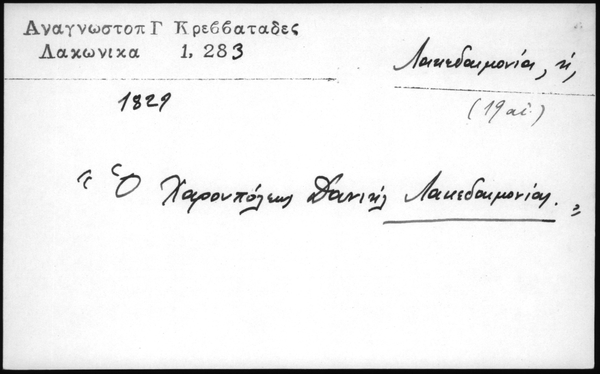 Αναγνωστοπ Γ Κρεββαταδες
Λακωνικα 1, 283
Λακεδαιμονία, ἡ,
(19 αἰ.)
1829
« Ὁ Χαρουπόλεως Δανιήλ Λακεδαιμονίας. »